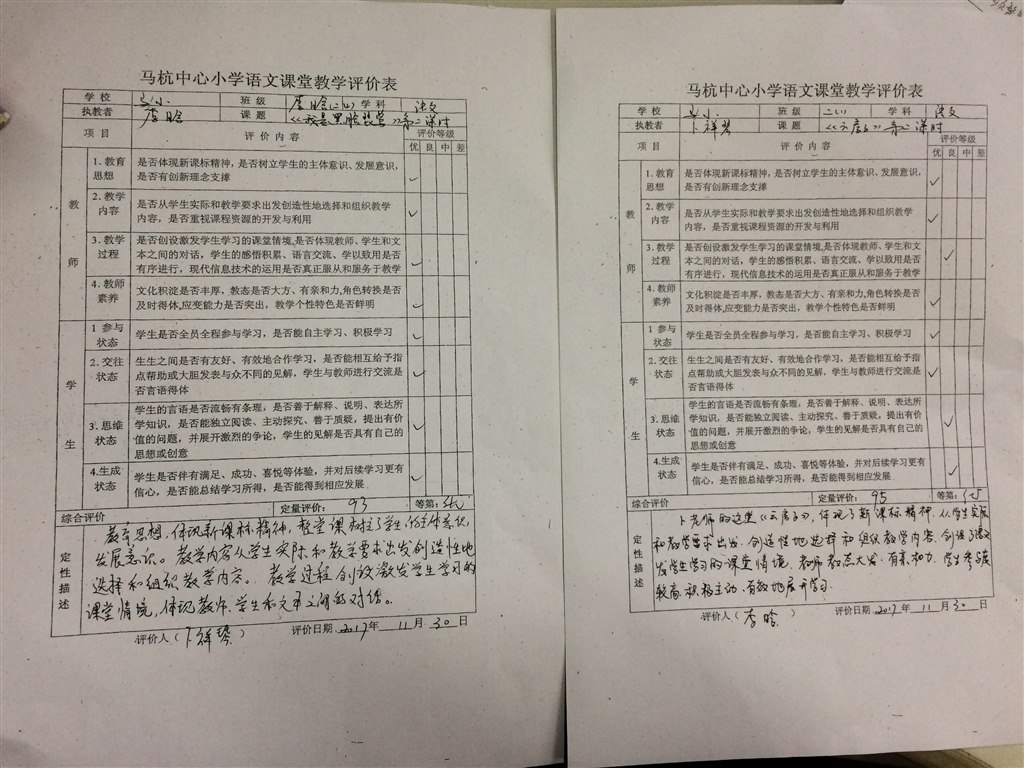 马杭中心小学语文课堂教学评价表
学校 马小 班级 学科 语文
执教者 课题 第二课时
项目 评价内容 评价等级
优 良 中 差
教师
1. 教育思想
是否体现新课标精神，是否树立学生的主体意识、发展意识，
是否有创新理念支撑
2. 教学内容
是否从学生实际和教学要求出发创造性地选择和组织教学
内容，是否重视课程资源的开发与利用
3. 教学过程
是否创设激发学生学习的课堂情境，是否体现教师、学生和文
本之间的对话，学生的感悟积累、语言交流、学以致用是否
有序进行，现代信息技术的运用是否真正服从和服务于教学
4. 教师素养
文化积淀是否丰厚，教态是否大方、有亲和力，角色转换是否
及时得体，应变能力是否突出，教学个性特色是否鲜明
学生
1 参与状态
学生是否全员全程参与学习，是否能自主学习、积极学习
2. 交往状态
生生之间是否有友好、有效地合作学习，是否能相互给予指
点帮助或大胆发表与众不同的见解，学生与教师进行交流是
否言语得体
3. 思维状态
学生的言语是否流畅有条理，是否善于解释、说明、表达所
学知识，是否能独立阅读、主动探究、善于质疑，提出有价
值的问题，并展开激烈的争论，学生的见解是否具有自己的
思想或创意
4.生成状态
学生是否伴有满足、成功、喜悦等体验，并对后续学习更有
信心，是否能总结学习所得，是否能得到相应发展
综合评价 定量评价：93 等第：优
定性描述
教育思想，体现新课标精神，整堂课树立了学生的主体意识、
发展意识。教学内容从学生实际和教学要求出发创造性地
选择和组织教学内容。教学过程创设激发学生学习的
课堂情境，体现教师、学生和文本之间的对话。
评价人（卜祥琴） 评价日期 2017年 11月 30日
马杭中心小学语文课堂教学评价表
学校 马小 班级 二（1） 学科 语文
执教者 卜祥琴 课题 《云房子》第二课时
项目 评价内容 评价等级
优 良 中 差
教师
1. 教育思想
是否体现新课标精神，是否树立学生的主体意识、发展意识，
是否有创新理念支撑
2. 教学内容
是否从学生实际和教学要求出发创造性地选择和组织教学
内容，是否重视课程资源的开发与利用
3. 教学过程
是否创设激发学生学习的课堂情境，是否体现教师、学生和文
本之间的对话，学生的感悟积累、语言交流、学以致用是否
有序进行，现代信息技术的运用是否真正服从和服务于教学
4. 教师素养
文化积淀是否丰厚，教态是否大方、有亲和力，角色转换是否
及时得体，应变能力是否突出，教学个性特色是否鲜明
学生
1 参与状态
学生是否全员全程参与学习，是否能自主学习、积极学习
2. 交往状态
生生之间是否有友好、有效地合作学习，是否能相互给予指
点帮助或大胆发表与众不同的见解，学生与教师进行交流是
否言语得体
3. 思维状态
学生的言语是否流畅有条理，是否善于解释、说明、表达所
学知识，是否能独立阅读、主动探究、善于质疑，提出有价
值的问题，并展开激烈的争论，学生的见解是否具有自己的
思想或创意
4.生成状态
学生是否伴有满足、成功、喜悦等体验，并对后续学习更有
信心，是否能总结学习所得，是否能得到相应发展
综合评价 定量评价：95 等第：优
定性描述
卜老师的这堂《云房子》，体现了新课标精神，从学生实际
和教学要求出发，创造性地选择和组织教学内容，创设了激
发学生学习的课堂情境，教师教态大方、有亲和力，学生参与度
较高，积极主动、有效地展开学习。
评价人（ 晗） 评价日期 2017年 11月 30日